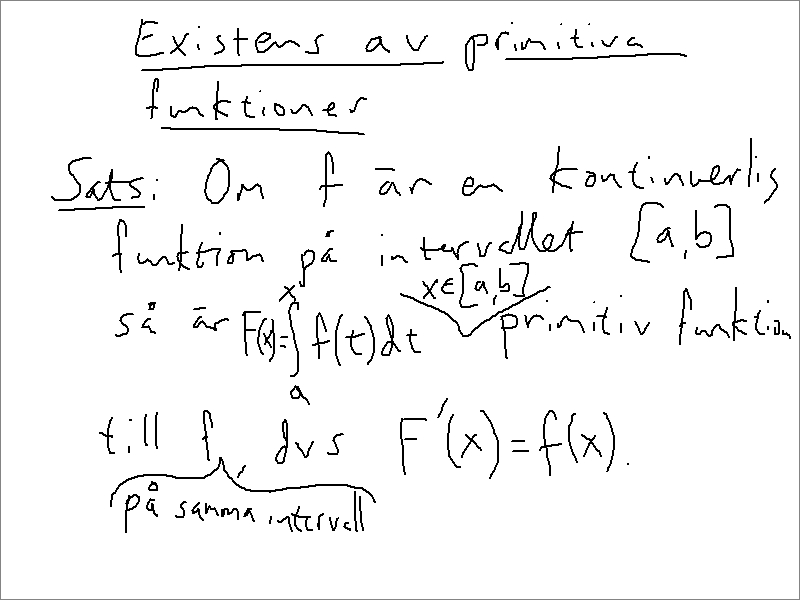 Existens av primitiva
funktioner
Sats: Om f är en kontinuerlig
funktion på intervallet [a,b]
x∈[a,b]
så är F(x)=∫ₐˣ f(t)dt primitiv funktion
till f, dvs F'(x)=f(x).
på samma intervall